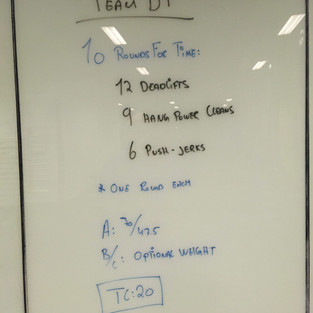 TEAM DT
10 ROUNDS FOR TIME:
12 DEADLIFTS
9 HANG POWER CLEANS
6 PUSH-JERKS
* ONE ROUND EACH
A: 70/47.5
B/C: OPTIONAL WEIGHT
TC:20